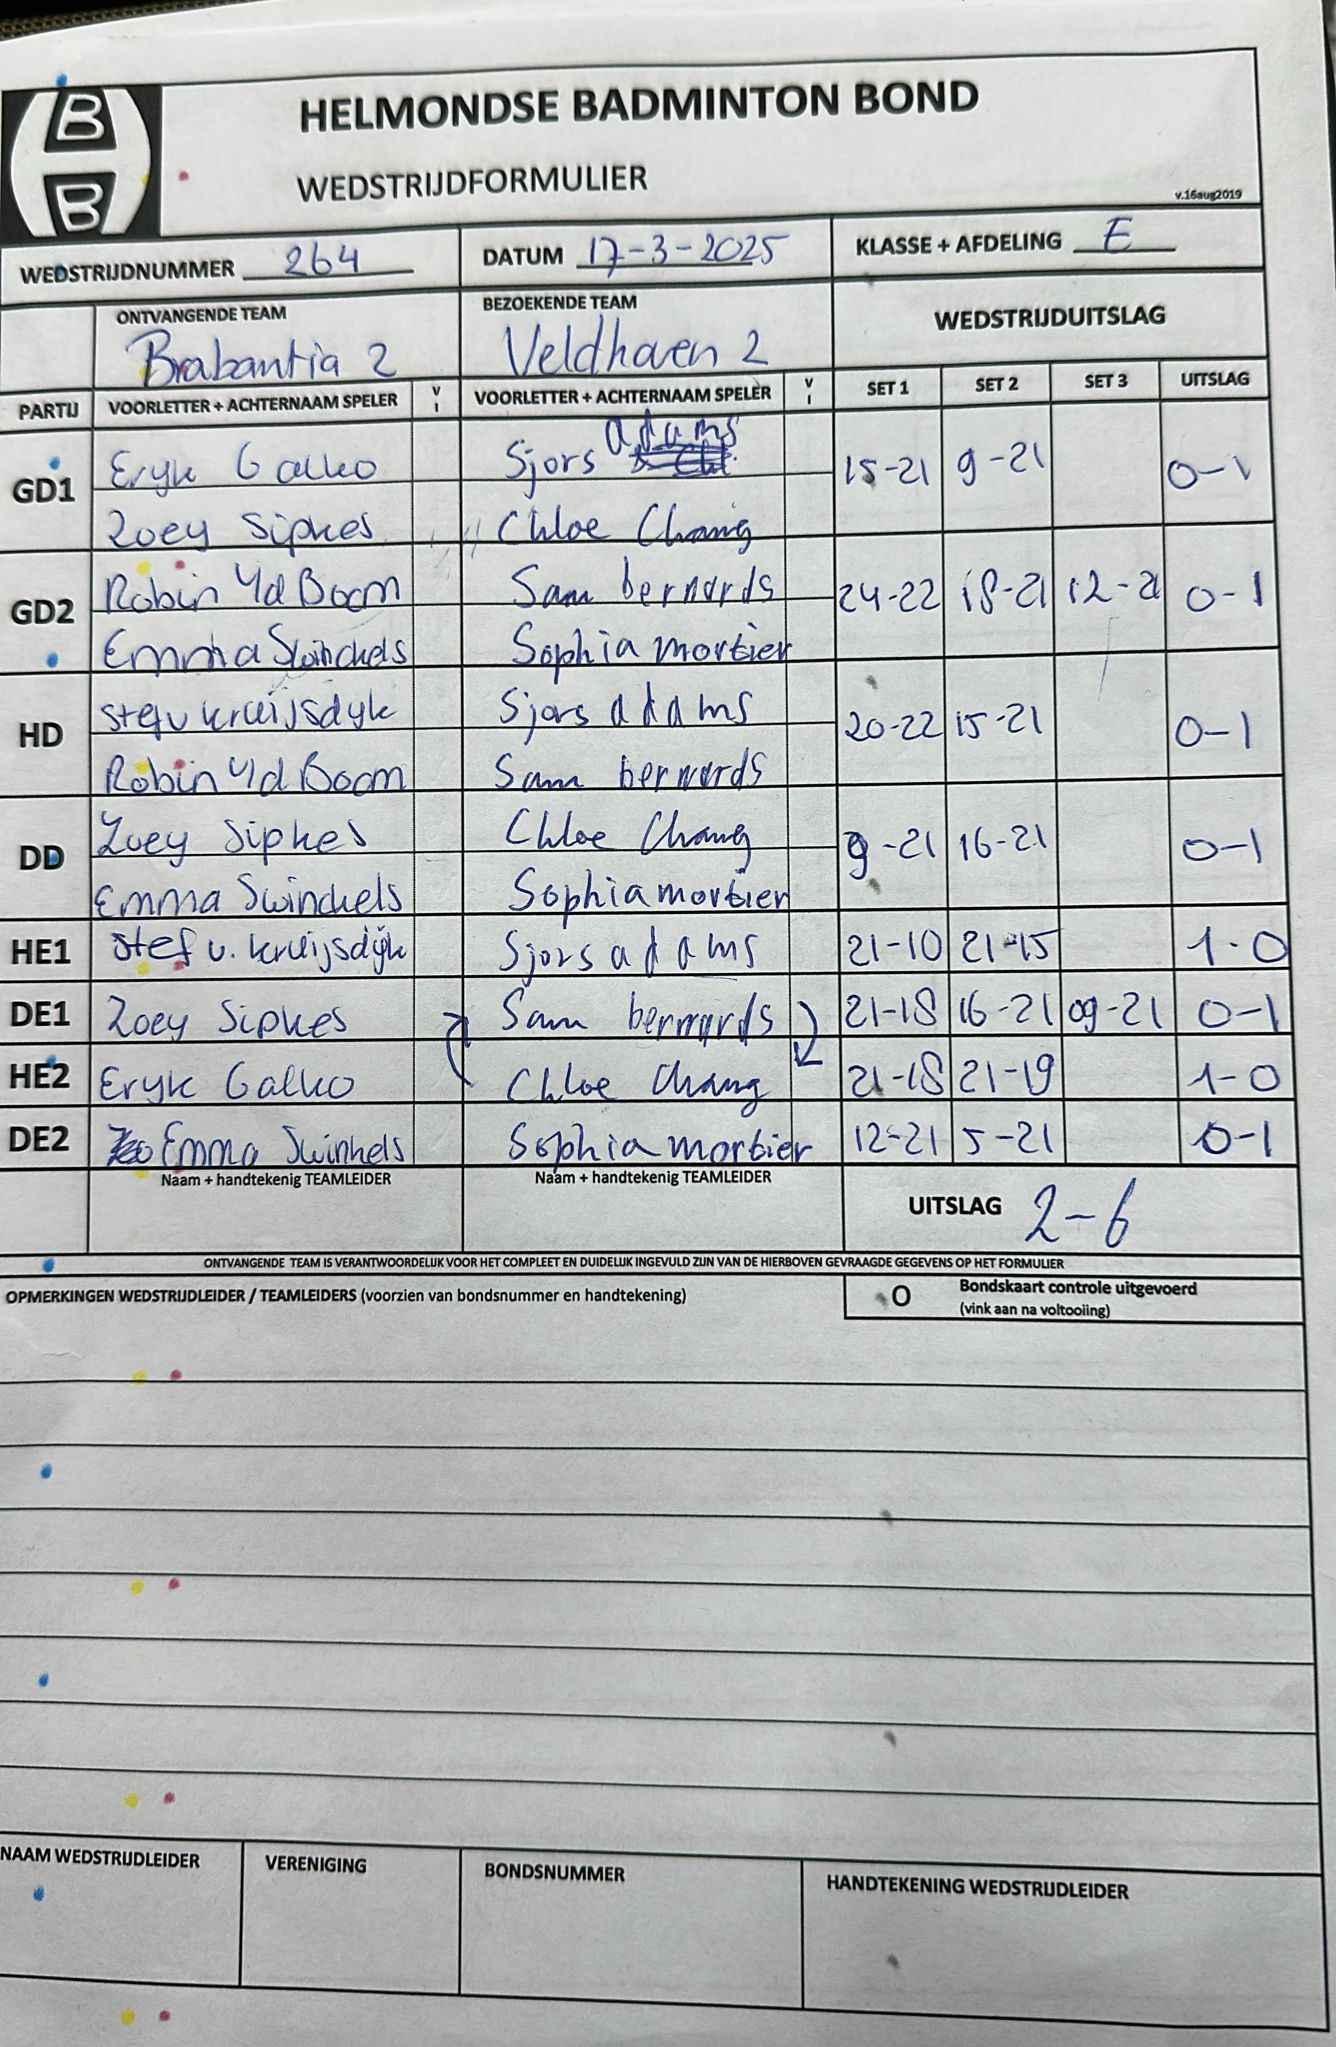 B
B
HELMONDSE BADMINTON BOND
WEDSTRIJDFORMULIER
v.16aug2019
WEDSTRIJDNUMMER 264 DATUM 17-3-2025 KLASSE + AFDELING E
ONTVANGENDE TEAM BEZOEKENDE TEAM WEDSTRIJDUITSLAG
Brabantia 2 Veldhoven 2
PARTIJ VOORLETTER + ACHTERNAAM SPELER V I VOORLETTER + ACHTERNAAM SPELER V I SET 1 SET 2 SET 3 UITSLAG
GD1 Eryk Galko Sjors adams 15-21 9-21 0-1
Zoey Sipkes Chloe Chang
GD2 Robin vd Boom Sam bernards 24-22 18-21 12-21 0-1
Emma Swinckels Sophia mortier
HD Stef v kruijsdijk Sjors adams 20-22 15-21 0-1
Robin vd Boom Sam bernards
DD Zoey Sipkes Chloe Chang 9-21 16-21 0-1
Emma Swinckels Sophia mortier
HE1 Stef v. kruijsdijk Sjors adams 21-10 21-15 1-0
DE1 Zoey Sipkes Sam bernards 21-18 16-21 09-21 0-1
HE2 Eryk Galko Chloe Chang 21-18 21-19 1-0
DE2 Emma Swinkels Sophia mortier 12-21 5-21 0-1
Naam + handtekenig TEAMLEIDER Naam + handtekenig TEAMLEIDER UITSLAG 2-6
ONTVANGENDE TEAM IS VERANTWOORDELIJK VOOR HET COMPLEET EN DUIDELIJK INGEVULD ZIJN VAN DE HIERBOVEN GEVRAAGDE GEGEVENS OP HET FORMULIER
OPMERKINGEN WEDSTRIJDLEIDER / TEAMLEIDERS (voorzien van bondsnummer en handtekening) O Bondskaart controle uitgevoerd
(vink aan na voltooiing)
NAAM WEDSTRIJDLEIDER VERENIGING BONDSNUMMER HANDTEKENING WEDSTRIJDLEIDER